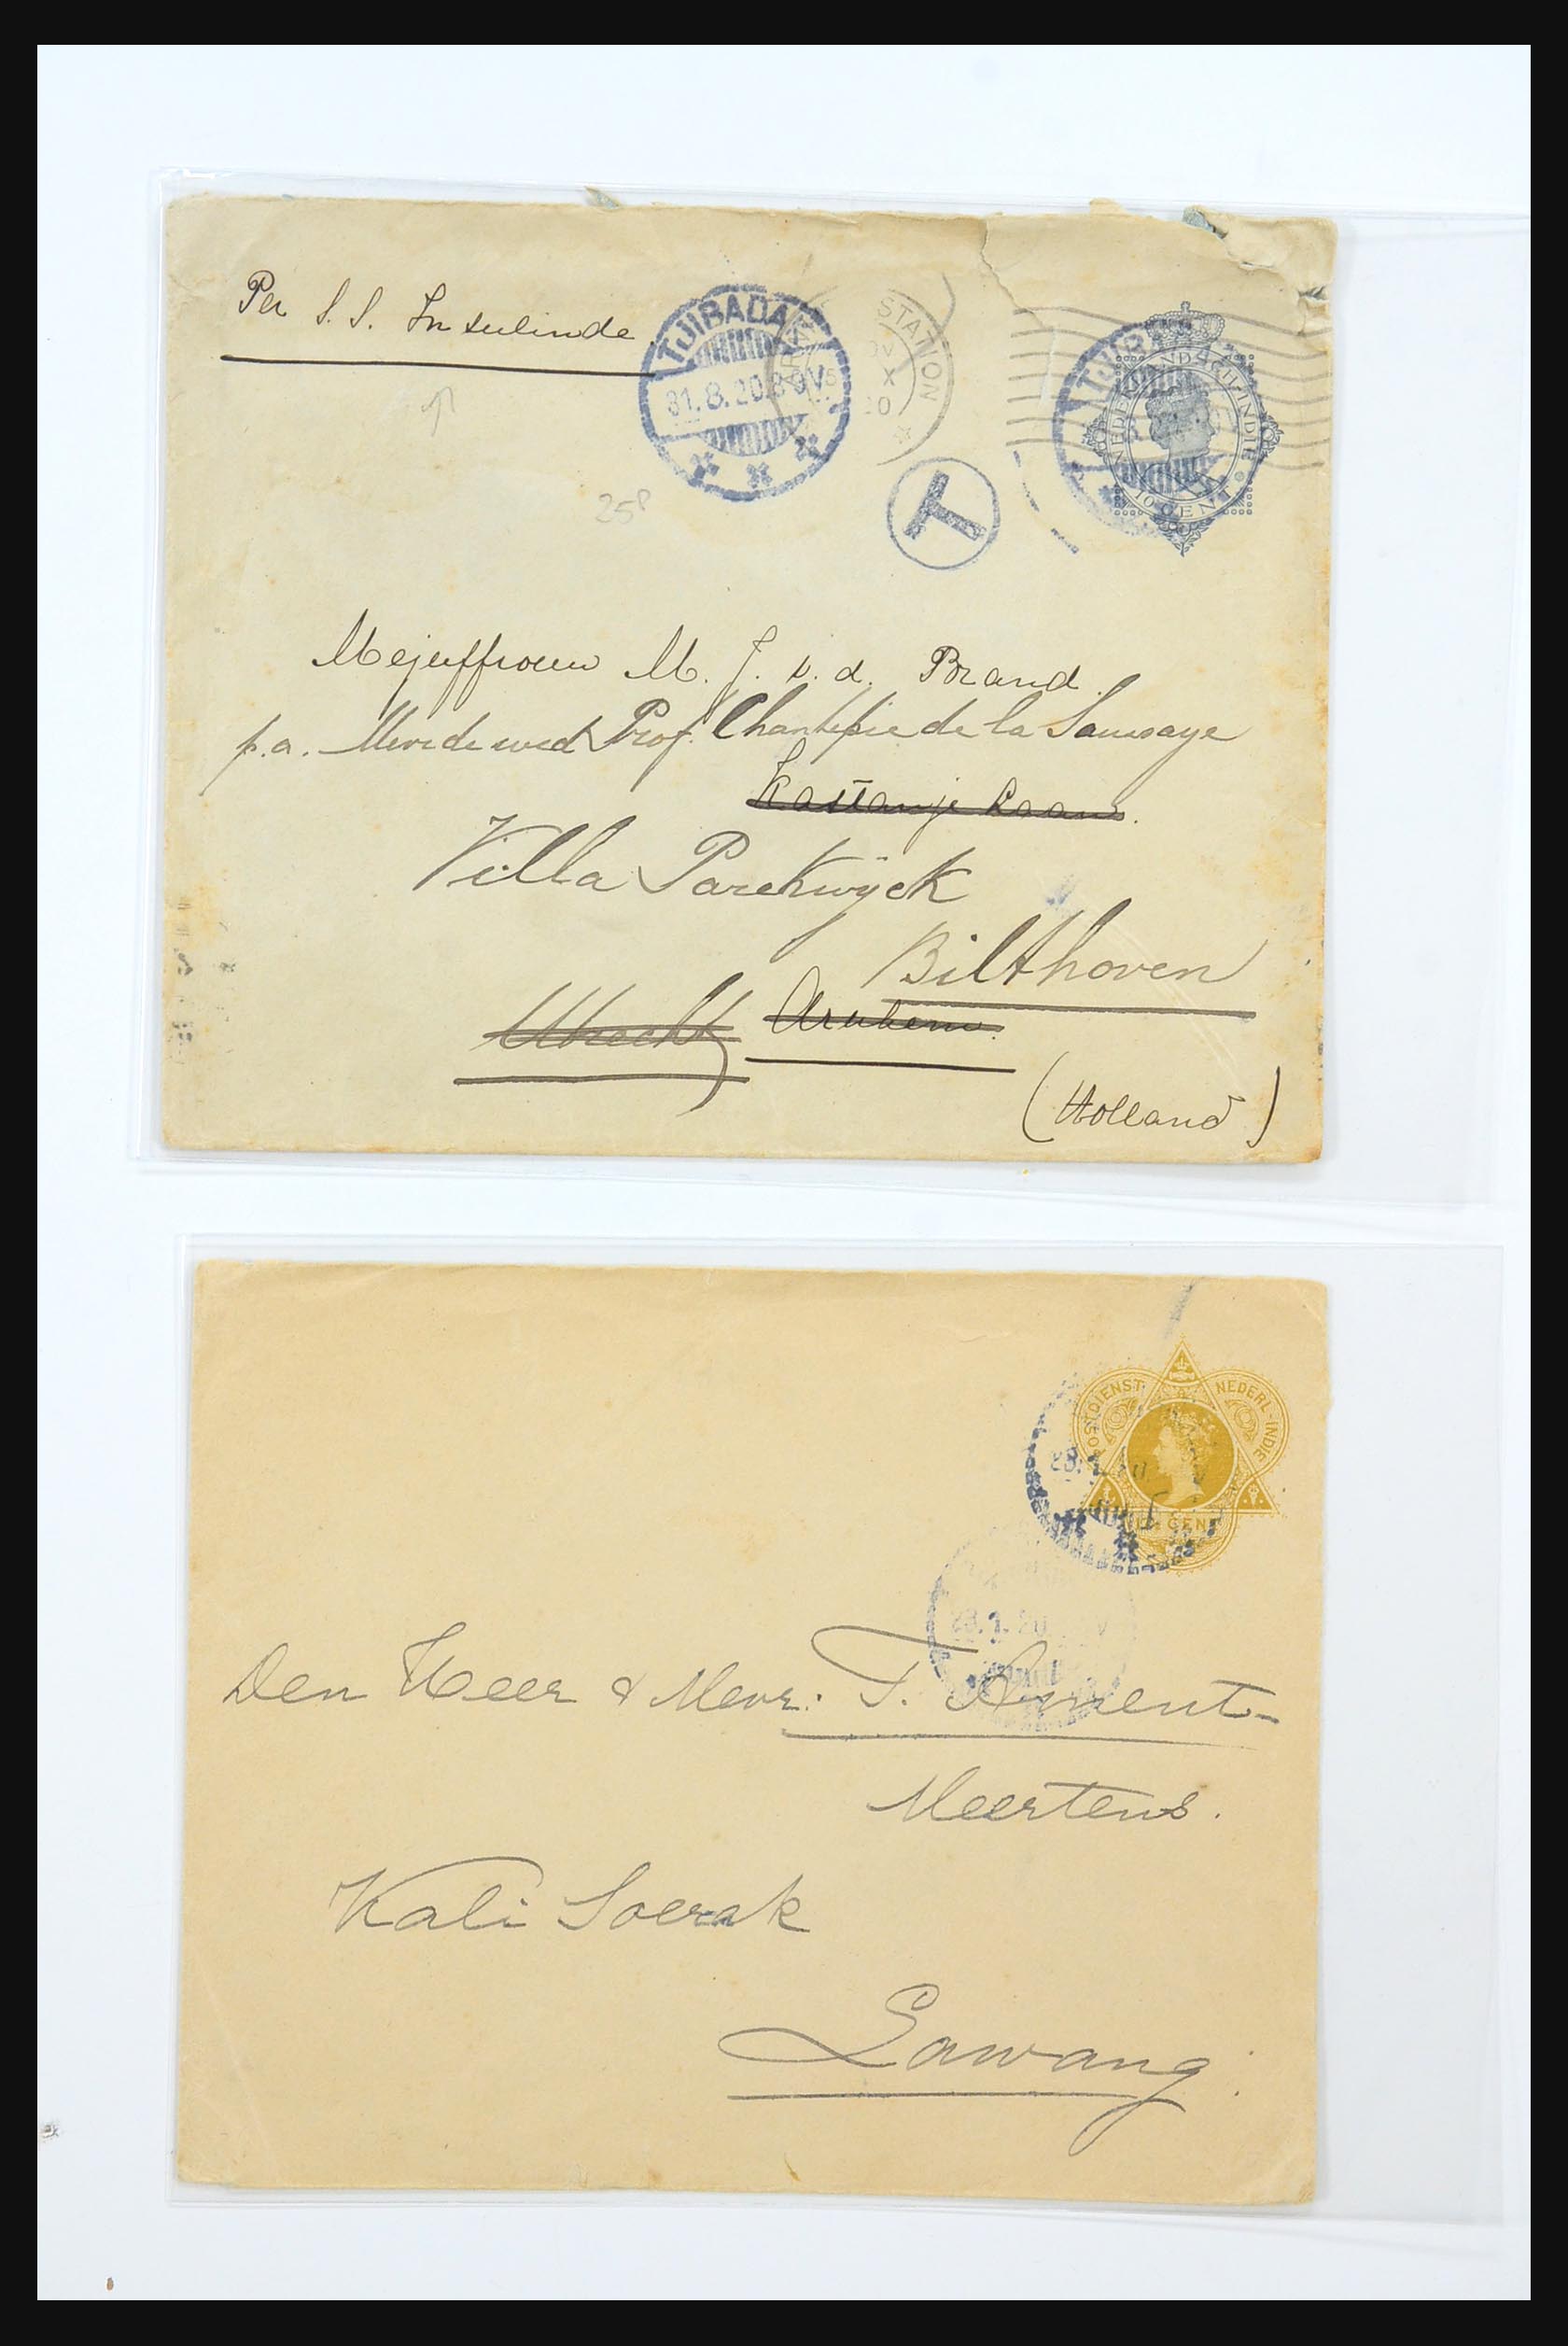 Per S.S. Insulinde
TJIBADAK
31.8.20.8-9V
STATION
T
NEDERLANDSCH-INDIE
10 CENT
25,-
Mejuffrouw M. J. v. d. Brand.
p.a. Mevr de wed Prof. Chantepie de la Saussaye
Kastanje Laan.
Villa Parckwÿck
Bilthoven
Utrecht Arnhem.
(Holland)
POSTDIENST NEDERL-INDIE
CENT
Den Heer & Mevr: T. Ament-
Meertens.
Kali Soerak
Lawang.